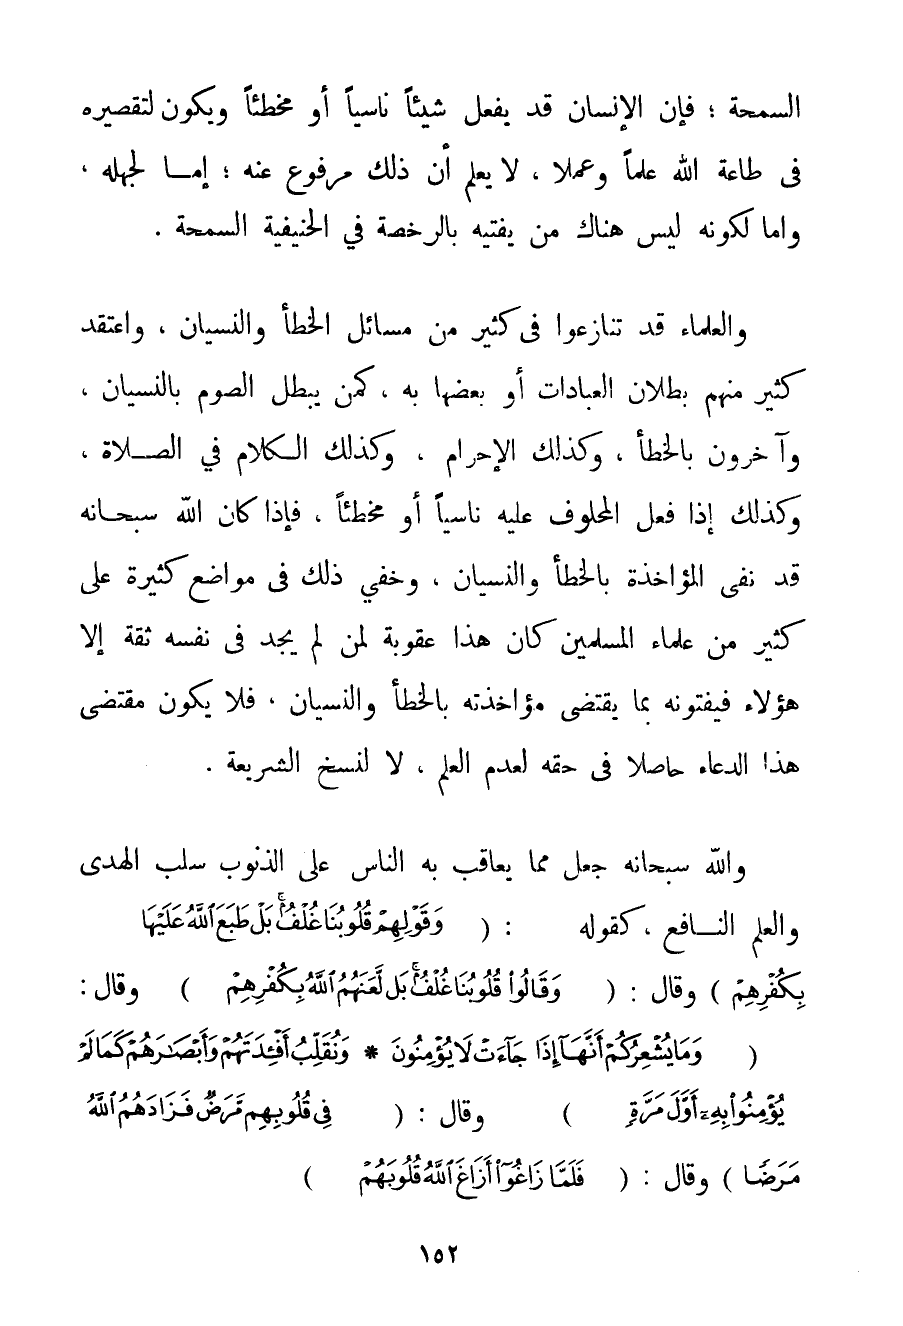 السمحة ؛ فإن الإنسان قد يفعل شيئاً ناسياً أو مخطئاً ويكون لتقصيره
فى طاعة الله علماً وعملا ، لا يعلم أن ذلك مرفوع عنه ؛ إمـا لجهله ،
واما لكونه ليس هناك من يفتيه بالرخصة في الحنيفية السمحة .
والعلماء قد تنازعوا فى كثير من مسائل الخطأ والنسيان ، واعتقد
كثير منهم بطلان العبادات أو بعضها به ، كمن يبطل الصوم بالنسيان ،
وآخرون بالخطأ ، وكذلك الإحرام ، وكذلك الكلام في الصـلاة ،
وكذلك إذا فعل المحلوف عليه ناسياً أو مخطئاً ، فإذا كان الله سبحانه
قد نفى المؤاخذة بالخطأ والنسيان ، وخفي ذلك فى مواضع كثيرة على
كثير من علماء المسلمين كان هذا عقوبة لمن لم يجد فى نفسه ثقة إلا
هؤلاء فيفتونه بما يقتضى مؤاخذته بالخطأ والنسيان ، فلا يكون مقتضى
هذا الدعاء حاصلا فى حقه لعدم العلم ، لا لنسخ الشريعة .
والله سبحانه جعل مما يعاقب به الناس على الذنوب سلب الهدى
والعلم النـافع ، كقوله : ( وَقَوْلِهِمْ قُلُوبُنَا غُلْفٌۢ ۚ بَلْ طَبَعَ ٱللَّهُ عَلَيْهَا
بِكُفْرِهِمْ ) وقال : ( وَقَالُوا۟ قُلُوبُنَا غُلْفٌۢ ۚ بَل لَّعَنَهُمُ ٱللَّهُ بِكُفْرِهِمْ ) وقال :
( وَمَا يُشْعِرُكُمْ أَنَّهَآ إِذَا جَآءَتْ لَا يُؤْمِنُونَ * وَنُقَلِّبُ أَفْـِٔدَتَهُمْ وَأَبْصَـٰرَهُمْ كَمَا لَمْ
يُؤْمِنُوا۟ بِهِۦٓ أَوَّلَ مَرَّةٍ ) وقال : ( فِى قُلُوبِهِم مَّرَضٌ فَزَادَهُمُ ٱللَّهُ
مَرَضًا ) وقال : ( فَلَمَّا زَاغُوٓا۟ أَزَاغَ ٱللَّهُ قُلُوبَهُمْ )
١٥٢